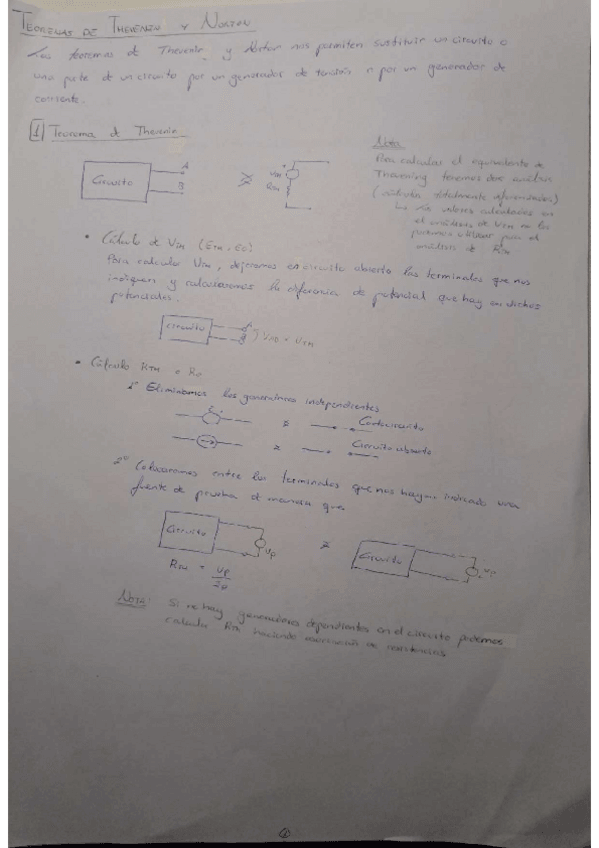 TEOREMAS DE THEVENIN Y NORTON
Los teoremas de Thevenin y Norton nos permiten sustituir un circuito o
una parte de un circuito por un generador de tensión o por un generador de
corriente.
1 Teorema de Thevenin
Circuito
A
B
VTH
RTH
Nota
Para calcular el equivalente de
Thevening tenemos dos análisis
(circuitos totalmente diferenciados)
los valores calculados en
el análisis de VTH no los
podemos utilizar para el
análisis de RTH
• Cálculo de VTH (ETH, E0)
Para calcular VTH, dejaremos en circuito abierto los terminales que nos
indiquen y calcularemos la diferencia de potencial que hay en dichos
potenciales.
Circuito
A
B
VAB = VTH
• Cálculo RTH = R0
1º Eliminamos los generadores independientes
Cortocircuito
Circuito abierto
2º Colocaremos entre los terminales que nos hayan indicado una
fuente de prueba de manera que
Circuito
VP
Circuito
VP
RTH = VP
NOTA: Si no hay generadores dependientes en el circuito podemos
calcular RTH haciendo asociación de resistencias